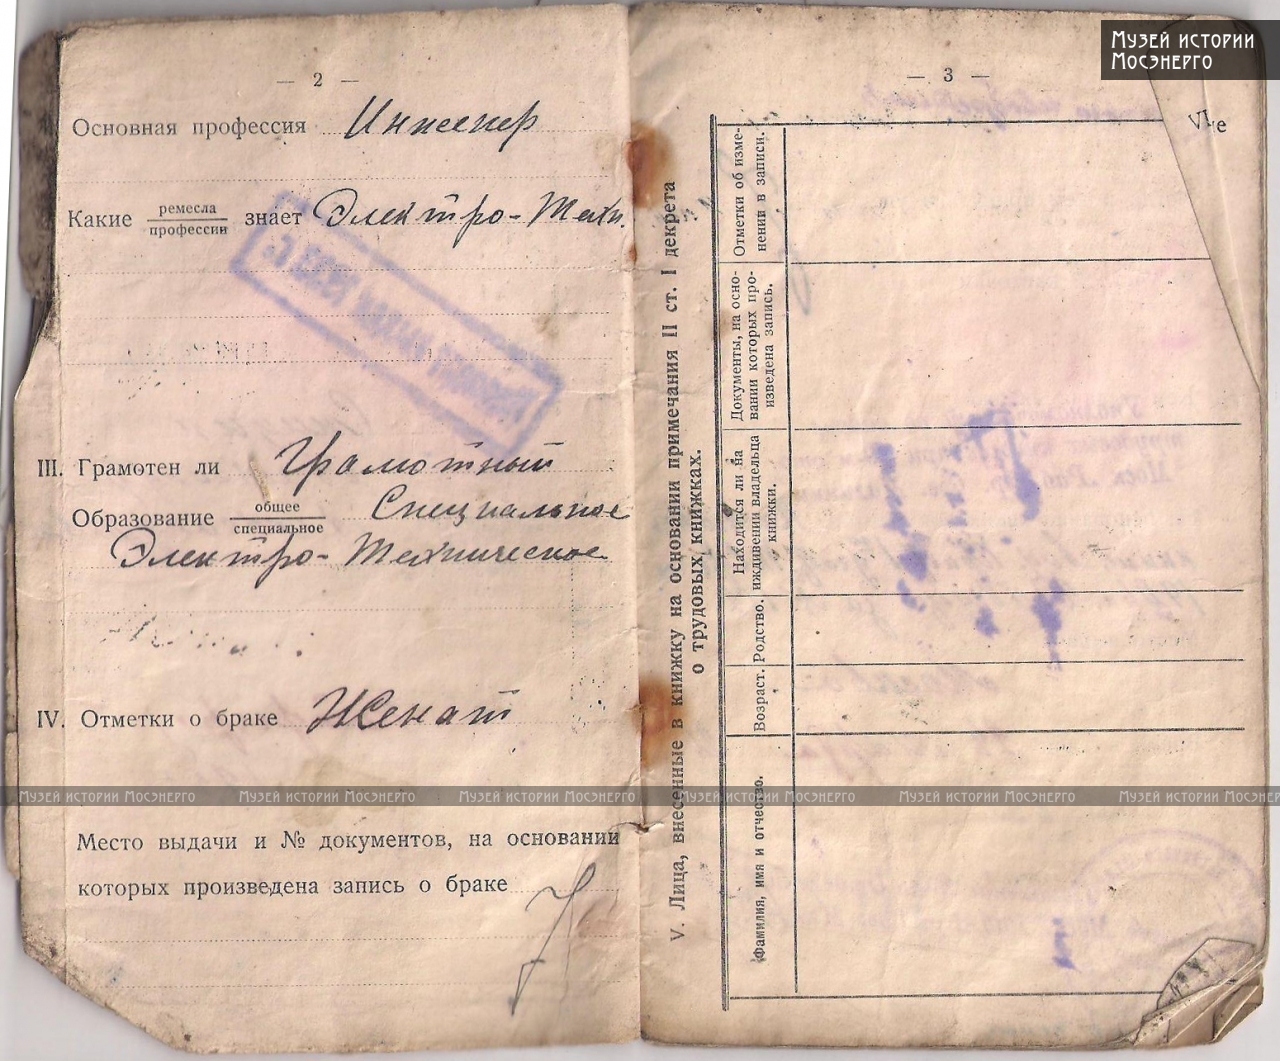 — 2 —
Основная профессия Инженер
Какие ремесла
профессии знает Электро-Техн.
III. Грамотен ли Грамотный
Образование общее
специальное Специальное
Электро-Техническое
IV. Отметки о браке Женат
Место выдачи и № документов, на основании
которых произведена запись о браке
— 3 —
V. Лица, внесенные в книжку на основании примечания II ст. I декрета
о трудовых книжках.
Фамилия, имя и отчество.
Возраст.
Родство.
Находится ли на
иждивении владельца
книжки.
Документы, на осно-
вании которых про-
изведена запись.
Отметки об изме-
нении в записи.
VI
е
Музей истории
Мосэнерго
Музей истории Мосэнерго Музей истории Мосэнерго Музей истории Мосэнерго Музей истории Мосэнерго Музей истории Мосэнерго Музей истории Мосэнер